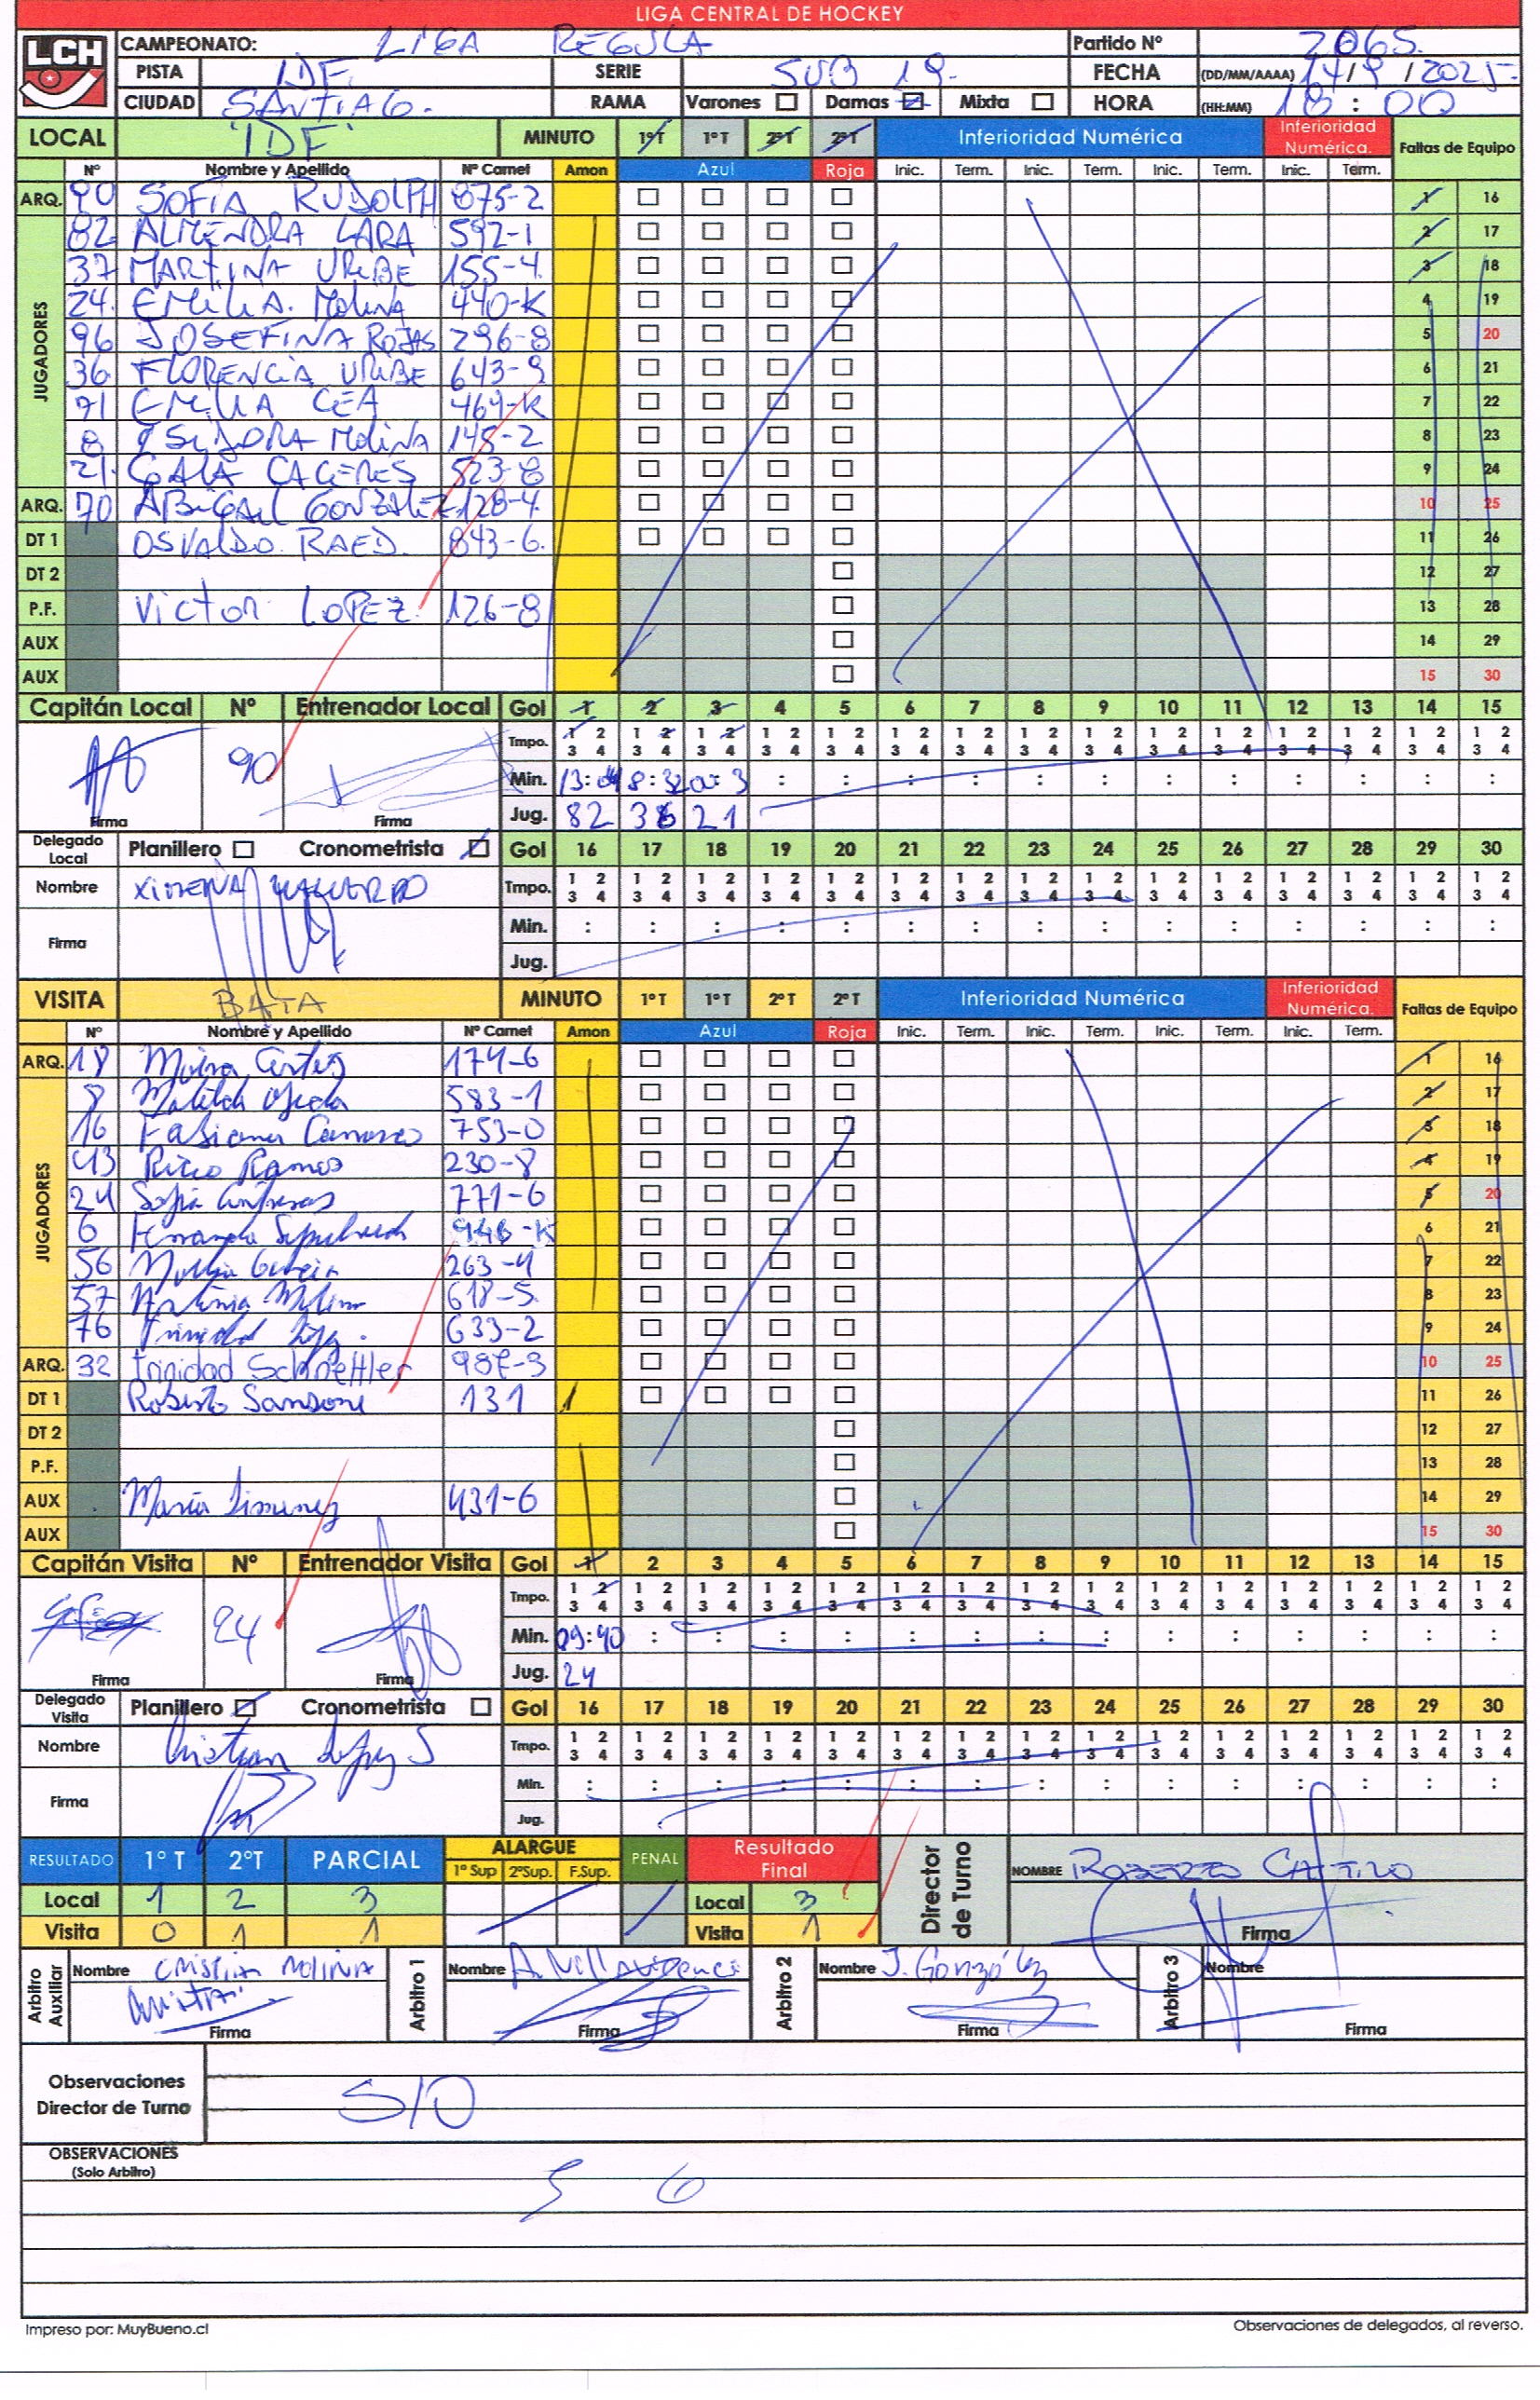 LIGA CENTRAL DE HOCKEY
LCH
CAMPEONATO: LIGA REGULA Partido Nº 2065.
PISTA IDF. SERIE SUB 19. FECHA (DD/MM/AAAA) 14/9/2025-
CIUDAD SANTIAGO. RAMA Varones Damas Mixta HORA (HH:MM) 18:00
LOCAL "IDF" MINUTO 1ºT 1ºT 2ºT 2ºT Inferioridad Numérica Inferioridad Numérica. Faltas de Equipo
Nº Nombre y Apellido Nº Carnet Amon Azul Roja Inic. Term. Inic. Term. Inic. Term. Inic. Term.
ARQ. 90 SOFIA RUDOLPH 875-2 1 16
JUGADORES
82 ALMENDRA LARA 592-1 2 17
37 MARTINA URIBE 155-4. 3 18
24. EMILIA. MOLINA 440-K 4 19
96 JOSEFINA ROJAS 296-8 5 20
36 FLORENCIA URIBE 643-9 6 21
71 EMILIA CEA 469-K 7 22
8 ISIDORA MOLINA 145-2 8 23
21. GALA CACERES 523-8 9 24
ARQ. 70 ABIGAIL GONZALEZ 128-4 10 25
DT 1 OSVALDO. RAED. 843-6. 11 26
DT 2 12 27
P.F. VICTOR LOPEZ. 126-8 13 28
AUX 14 29
AUX 15 30
Capitán Local Nº Entrenador Local Gol 1 2 3 4 5 6 7 8 9 10 11 12 13 14 15
90
Tmpo. 1 2 3 4
Min. 13:04 8:32
Jug. 82 36 21
Firma Firma
Delegado Local Planillero Cronometrista Gol 16 17 18 19 20 21 22 23 24 25 26 27 28 29 30
Nombre XIMENA Tmpo. 1 2 3 4
Firma Min.
Jug.
VISITA BATA MINUTO 1ºT 1ºT 2ºT 2ºT Inferioridad Numérica Inferioridad Numérica. Faltas de Equipo
Nº Nombre y Apellido Nº Carnet Amon Azul Roja Inic. Term. Inic. Term. Inic. Term. Inic. Term.
ARQ. 18 Moira Cortes 174-6 1 16
JUGADORES
8 Matilda Ojeda 583-1 2 17
16 Fabiana Carrasco 753-0 3 18
43 Ramos 230-8 4 19
24 Sofia Contreras 771-6 5 20
6 Fernanda Sepulveda 946-K 6 21
56 Garcia 263-4 7 22
57 Antonia Molina 618-5 8 23
76 Trinidad 633-2 9 24
ARQ. 32 Trinidad Schnettler 987-3 10 25
DT 1 Roberto Sansoni 131 11 26
DT 2 12 27
P.F. 13 28
AUX Maria Jimenez 431-6 14 29
AUX 15 30
Capitán Visita Nº Entrenador Visita Gol 1 2 3 4 5 6 7 8 9 10 11 12 13 14 15
24
Tmpo. 1 2 3 4
Min. 09:40
Jug. 24
Firma Firma
Delegado Visita Planillero Cronometrista Gol 16 17 18 19 20 21 22 23 24 25 26 27 28 29 30
Nombre Cristian Lopez S Tmpo. 1 2 3 4
Firma Min.
Jug.
RESULTADO 1º T 2ºT PARCIAL ALARGUE 1º Sup 2ºSup. F.Sup. PENAL Resultado Final Director de Turno NOMBRE ROBERTO CASTILLO
Local 1 2 3 Local 3
Visita 0 1 1 Visita 1 Firma
Arbitro Auxiliar Nombre CRISTIAN MOLINA Arbitro 1 Nombre A. Arbitro 2 Nombre J. González Arbitro 3 Nombre
Firma Firma Firma Firma
Observaciones
Director de Turno S/O
OBSERVACIONES
(Solo Arbitro)
S O
Impreso por: MuyBueno.cl Observaciones de delegados, al reverso.